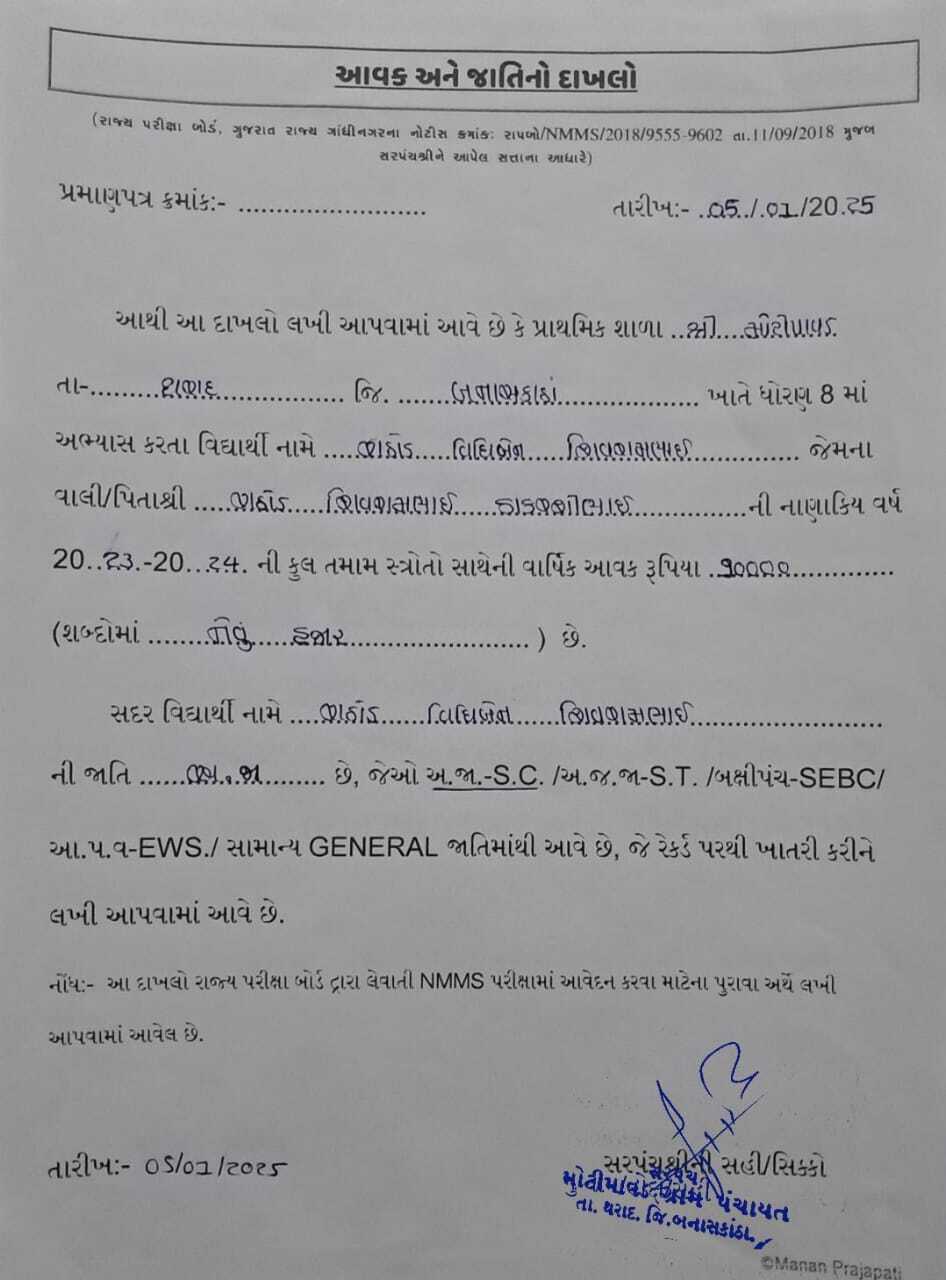 આવક અને જાતિનો દાખલો
(રાજ્ય પરીક્ષા બોર્ડ, ગુજરાત રાજ્ય ગાંધીનગરના નોટીસ ક્રમાંક: રાપબો/NMMS/2018/9555-9602 તા.11/09/2018 મુજબ
સરપંચશ્રીને આપેલ સત્તાના આધારે)
પ્રમાણપત્ર ક્રમાંક:- .......................... તારીખ:- ..05../.01/20.25
આથી આ દાખલો લખી આપવામાં આવે છે કે પ્રાથમિક શાળા ..શ્રી....
તા-.........થરાદ.................. જિ. ........બનાસકાંઠા.................. ખાતે ધોરણ 8 માં
અભ્યાસ કરતા વિદ્યાર્થી નામે ....રાઠોડ.....વિધિબેન.....શિવરામભાઈ.............. જેમના
વાલી/પિતાશ્રી .....રાઠોડ.....શિવરામભાઈ.....ઠાકરશીભાઈ...............ની નાણાકિય વર્ષ
20..23.-20...24. ની કુલ તમામ સ્ત્રોતો સાથેની વાર્ષિક આવક રૂપિયા ..............
(શબ્દોમાં .........નેવું.....હજાર........................ ) છે.
સદર વિદ્યાર્થી નામે ....રાઠોડ......વિધિબેન......શિવરામભાઈ........................
ની જાતિ ......અ.જા......... છે, જેઓ અ.જા.-S.C. /અ.જ.જા-S.T. /બક્ષીપંચ-SEBC/
આ.પ.વ-EWS./ સામાન્ય GENERAL જાતિમાંથી આવે છે, જે રેકર્ડ પરથી ખાતરી કરીને
લખી આપવામાં આવે છે.
નોંધ:- આ દાખલો રાજ્ય પરીક્ષા બોર્ડ દ્વારા લેવાતી NMMS પરીક્ષામાં આવેદન કરવા માટેના પુરાવા અર્થે લખી
આપવામાં આવેલ છે.
તારીખ:- 05/01/2025 સરપંચશ્રીની સહી/સિક્કો
સરપંચ
ગ્રામ પંચાયત
તા. થરાદ. જિ.બનાસકાંઠા.
©Manan Prajapati